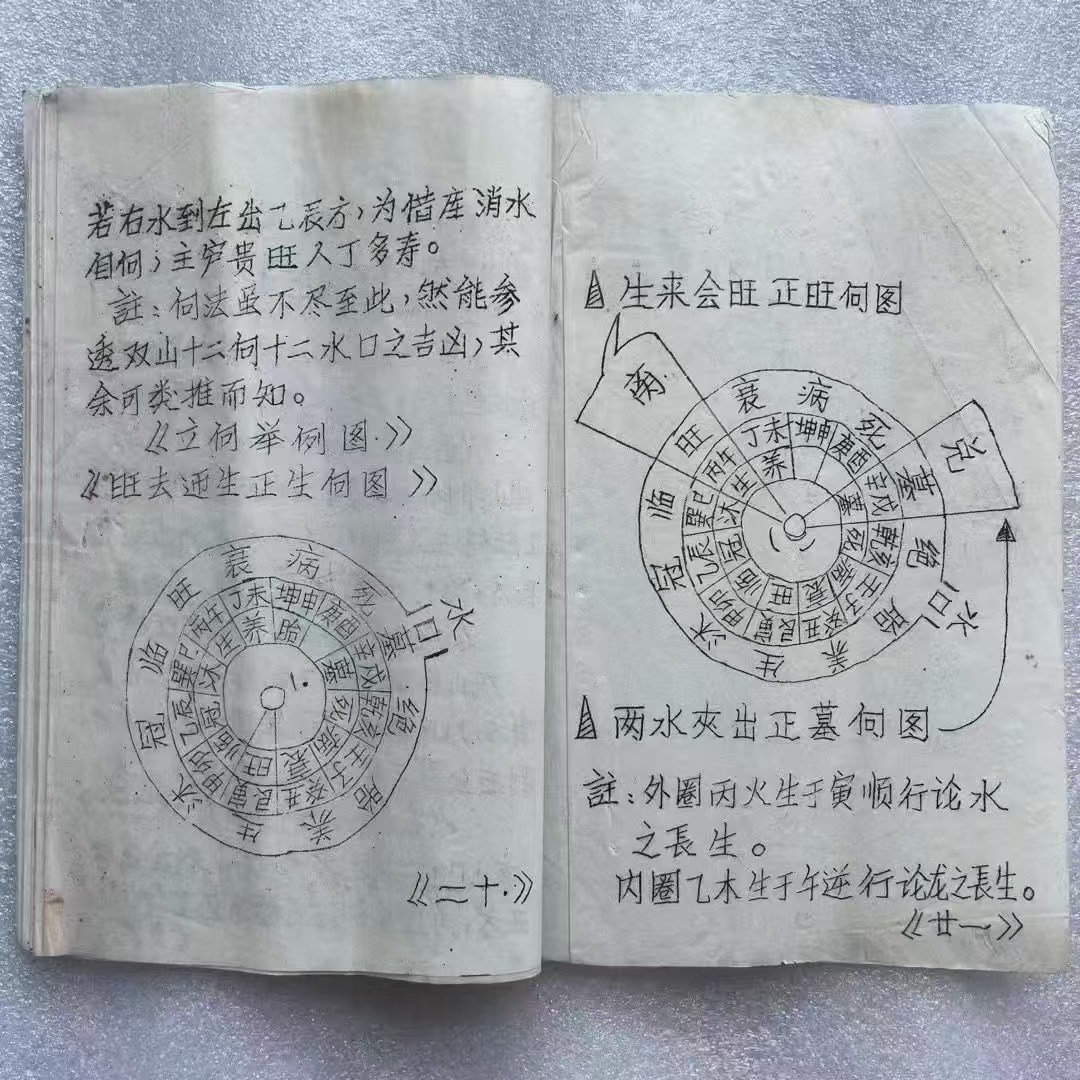 若右水到左出乙辰方，为借库消水
自向，主富贵旺人丁多寿。
註：向法虽不尽至此，然能参
透双山十二向十二水口之吉凶，其
余可类推而知。
《立向举例图·》
《旺去迎生正生向图》
衰 病 死 墓 绝 胎 养 生 沐 冠 临 旺
丁未 坤申 庚酉 辛戌 乾亥 壬子 癸丑 艮寅 甲卯 乙辰 巽巳 丙午
养 胎 墓 死 病 衰 旺 临 冠 沐 生
水口
《二十·》
生来会旺正旺向图
离
兑
衰 病 死 墓 绝 胎 养 生 沐 冠 临 旺
丁未 坤申 庚酉 辛戌 乾亥 壬子 癸丑 艮寅 甲卯 乙辰 巽巳 丙午
养 墓 死 病 衰 旺 临 冠 沐 生
水口
两水夾出正墓向图
註：外圈丙火生于寅顺行论水
之長生。
内圈乙木生于午逆行论龙之長生。
《廿一》